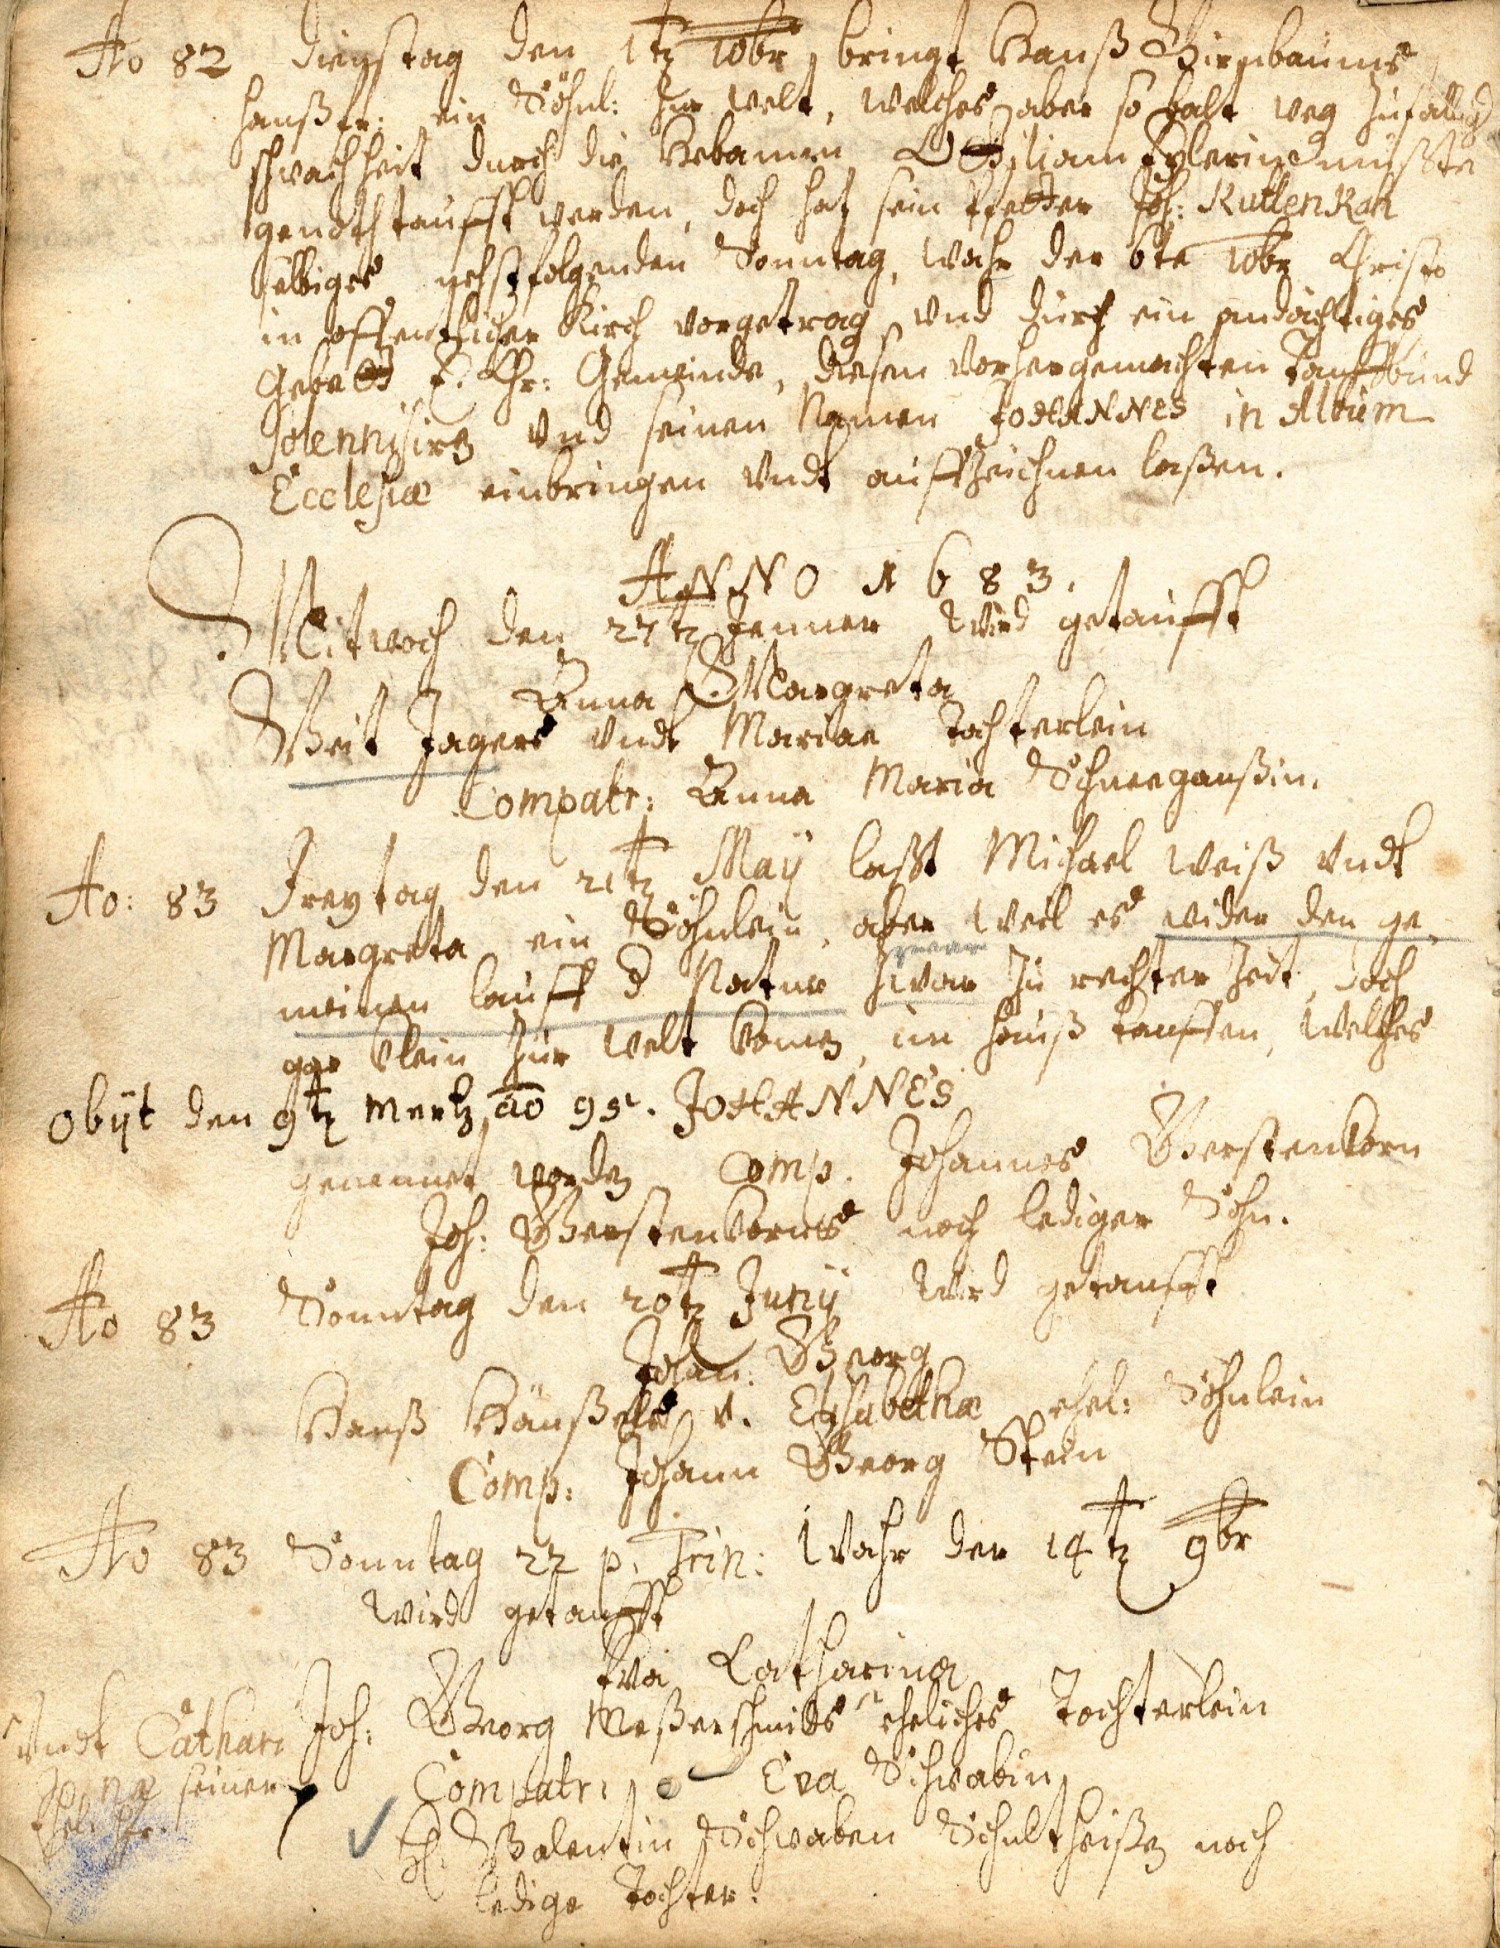 Ao 82 Dienstag den 1tz 10br bringt Hanß Birnbaums
haußfr: ein Söhnl: zur welt, welches aber so balt weg
schwachheit durch die Hebammen Ottiliam musste
genothtaufft werden, doch hat sein Pfetter Joh: Kuttenkan
selbiges nehstfolgenden Sonntag, wahr der 6te 10br Christo
in offentlicher Kirch vorgetrag, vnd durch ein andächtiges
Gebett E. Chr: Gemeinde, diesen vorhergemachten Tauffbund
solennisirn vnd seinen Namen JOHANNES in Album
Ecclesiæ einbringen vndt auffzeichnen laßen.
ANNO 1683.
Mitwoch den 27tz Jenner wird getaufft
Anna Margreta
Veit Jagers vndt Mariae Tochterlein
Compatr: Anna Maria Schneeganßin.
Ao: 83 Freytag den 21tz Maÿ lasst Michael Weiß vndt
Margreta ein Söhnlein, aber weil es wider den ge-
meinen lauff d Natur zwar zu rechter Zeit, doch
gar klein zur welt komen, im hauß tauffen, welches
obijt den 9tz Mertz ao 95. JOHANNES
genennet worden Comp. Johannes Gerstenkorn
Joh: Gerstenkorns noch lediger Sohn.
Ao 83 Sonntag den 20tz Junÿ wird getaufft
Johan: Georg
Hanß Häußels v. Elisabethæ ehel: Söhnlein
Comp: Johann Georg Stein
Ao 83 Sonntag 22 p. Trin: wahr der 14tz 9br
wird getaufft
Eva Catharina
Joh: Georg Meßerschmids ⌜ eheliches Tochterlein
⌜ vndt Cathari
næ seiner
Ehel. hfr.
Compatr: Eva Schwabin,
H. Valentin Schwaben Schultheißen noch
ledige Tochter.